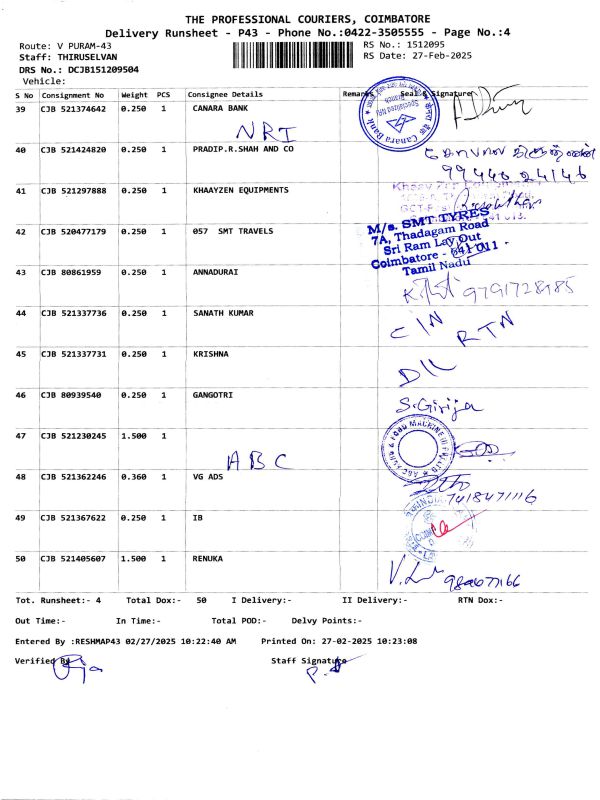 THE PROFESSIONAL COURIERS, COIMBATORE
Delivery Runsheet - P43 - Phone No.:0422-3505555 - Page No.:4
Route: V PURAM-43
RS No.: 1512095
Staff: THIRUSELVAN
RS Date: 27-Feb-2025
DRS No.: DCJB151209504
Vehicle:
S No Consignment No Weight PCS Consignee Details Remarks Seal & Signature
39 CJB 521374642 0.250 1 CANARA BANK
NRI
Specialized NRI Branch
Canara Bank
40 CJB 521424820 0.250 1 PRADIP.R.SHAH AND CO
99440 24146
41 CJB 521297888 0.250 1 KHAAYZEN EQUIPMENTS
42 CJB 520477179 0.250 1 057 SMT TRAVELS
M/s. SMT TYRES
7A, Thadagam Road
Sri Ram Lay Out
Coimbatore - 641 011.
Tamil Nadu
43 CJB 80861959 0.250 1 ANNADURAI
9791728985
44 CJB 521337736 0.250 1 SANATH KUMAR
C/N RTN
45 CJB 521337731 0.250 1 KRISHNA
D/L
46 CJB 80939540 0.250 1 GANGOTRI
S.Girija
47 CJB 521230245 1.500 1
ABC
48 CJB 521362246 0.360 1 VG ADS
7418471116
49 CJB 521367622 0.250 1 IB
50 CJB 521405607 1.500 1 RENUKA
Tot. Runsheet:- 4 Total Dox:- 50 I Delivery:- II Delivery:- RTN Dox:-
Out Time:- In Time:- Total POD:- Delvy Points:-
Entered By :RESHMAP43 02/27/2025 10:22:40 AM Printed On: 27-02-2025 10:23:08
Verified By Staff Signature